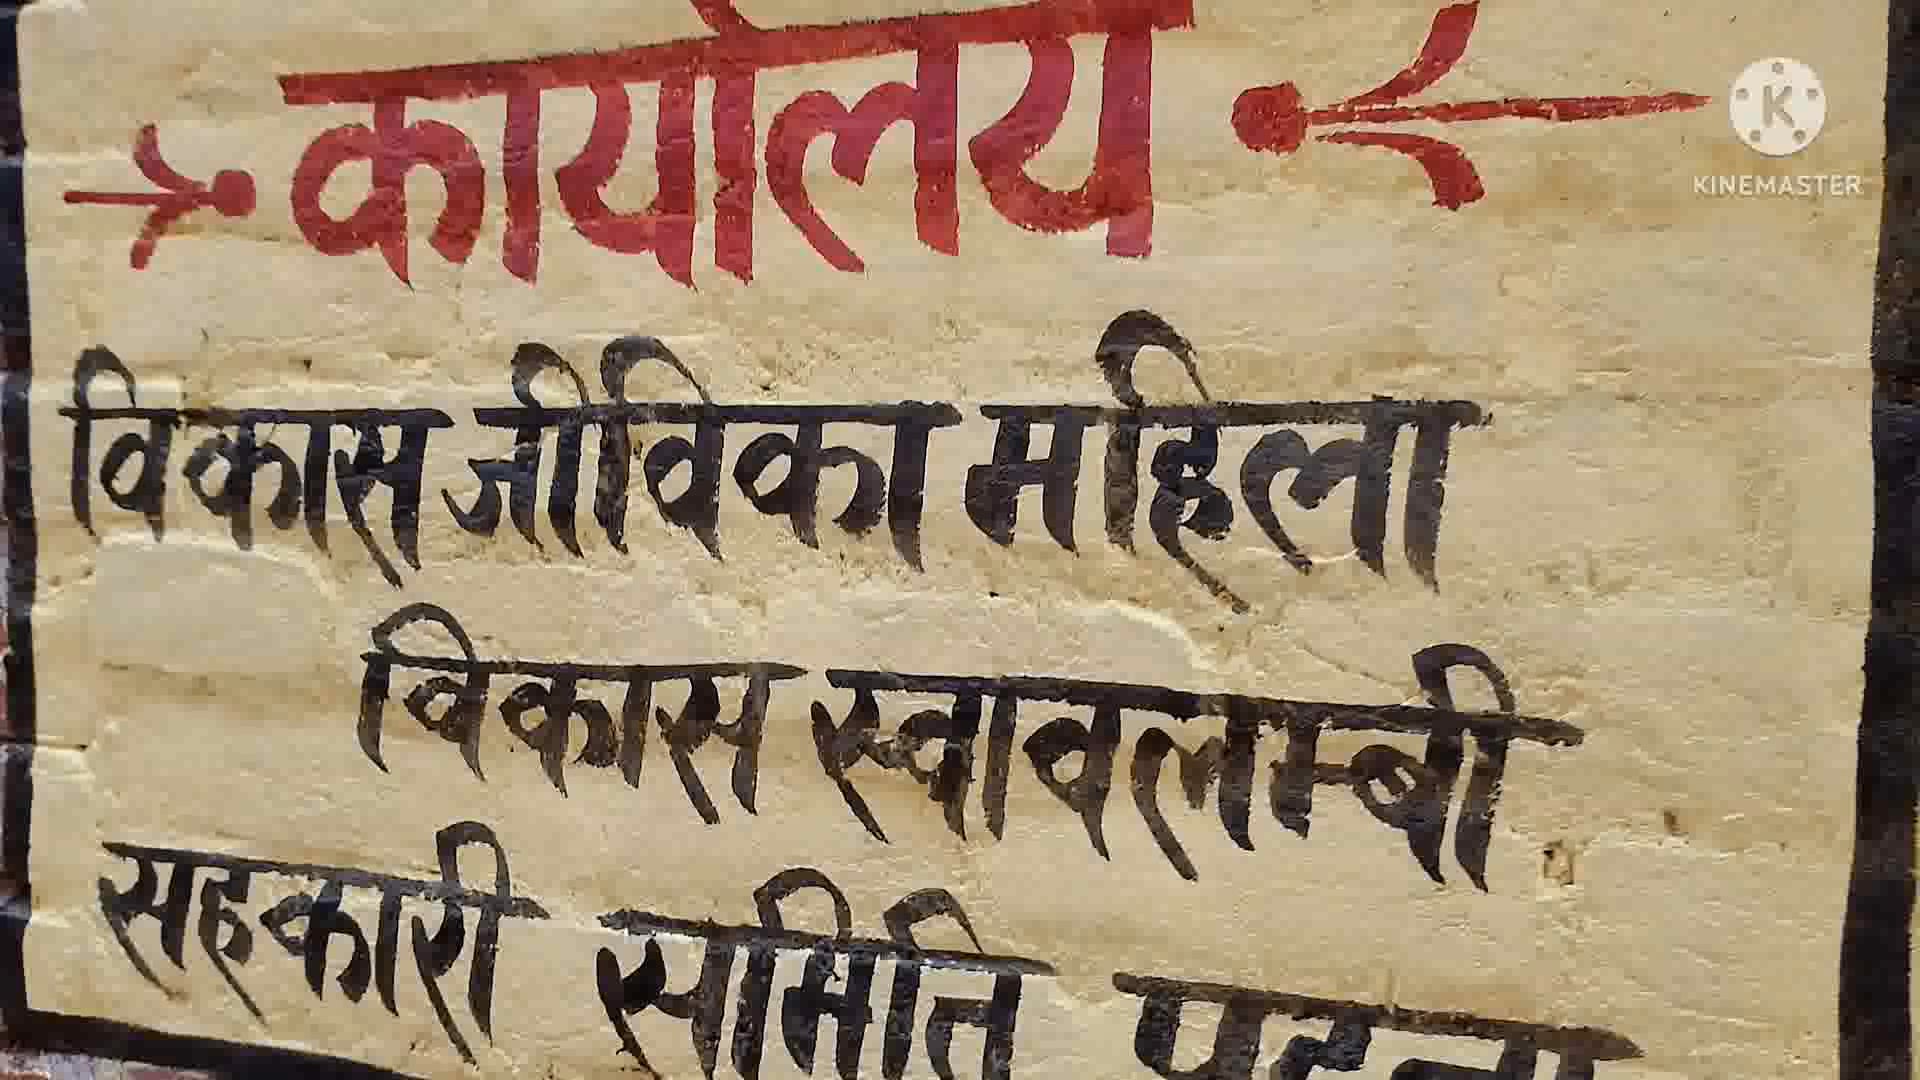 कार्यालय
विकास जीविका महिला
विकास स्वावलम्बी
सहकारी समिति
K
KINEMASTER